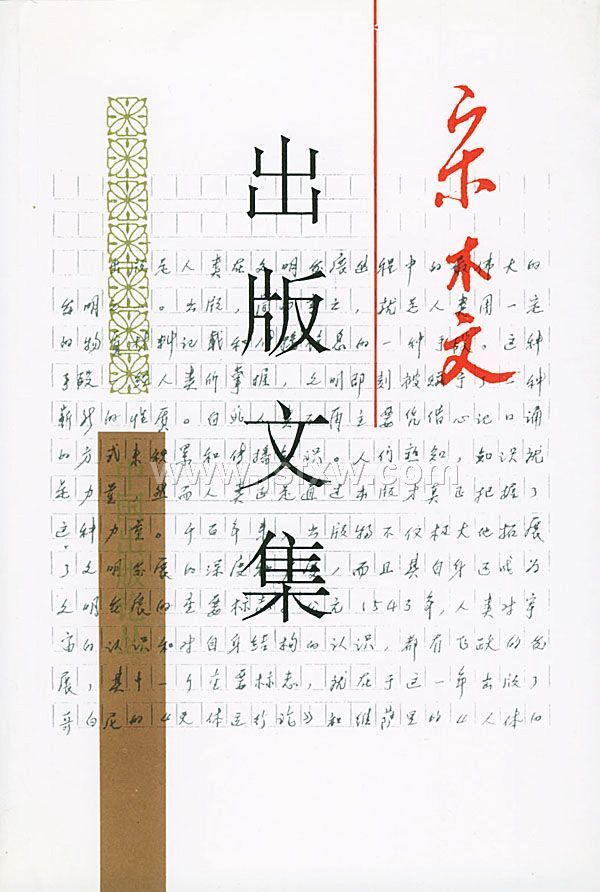 宋木文
出版文集
出版是人类在文明发展进程中的最伟大的
发明之一。出版,简而言之,就是人类用一定
的物质材料记载和传播信息的一种手段。这种
手段一经人类所掌握,文明即刻被赋予了一种
崭新的性质。自此人类不再主要凭借心记口诵
的方式来积累和传播知识。人们熟知,知识就
是力量,然而人类正是通过出版才真正把握了
这种力量。千百年来,出版物不仅极大地拓展
了文明发展的深度和广度,而且其自身还成为
文明发展的重要标志。公元1543年,人类对宇
宙的认识和对自身结构的认识,都有飞跃的发
展,其中一个重要标志,就在于这一年出版了
哥白尼的《天体运行论》和维萨里的《人体的